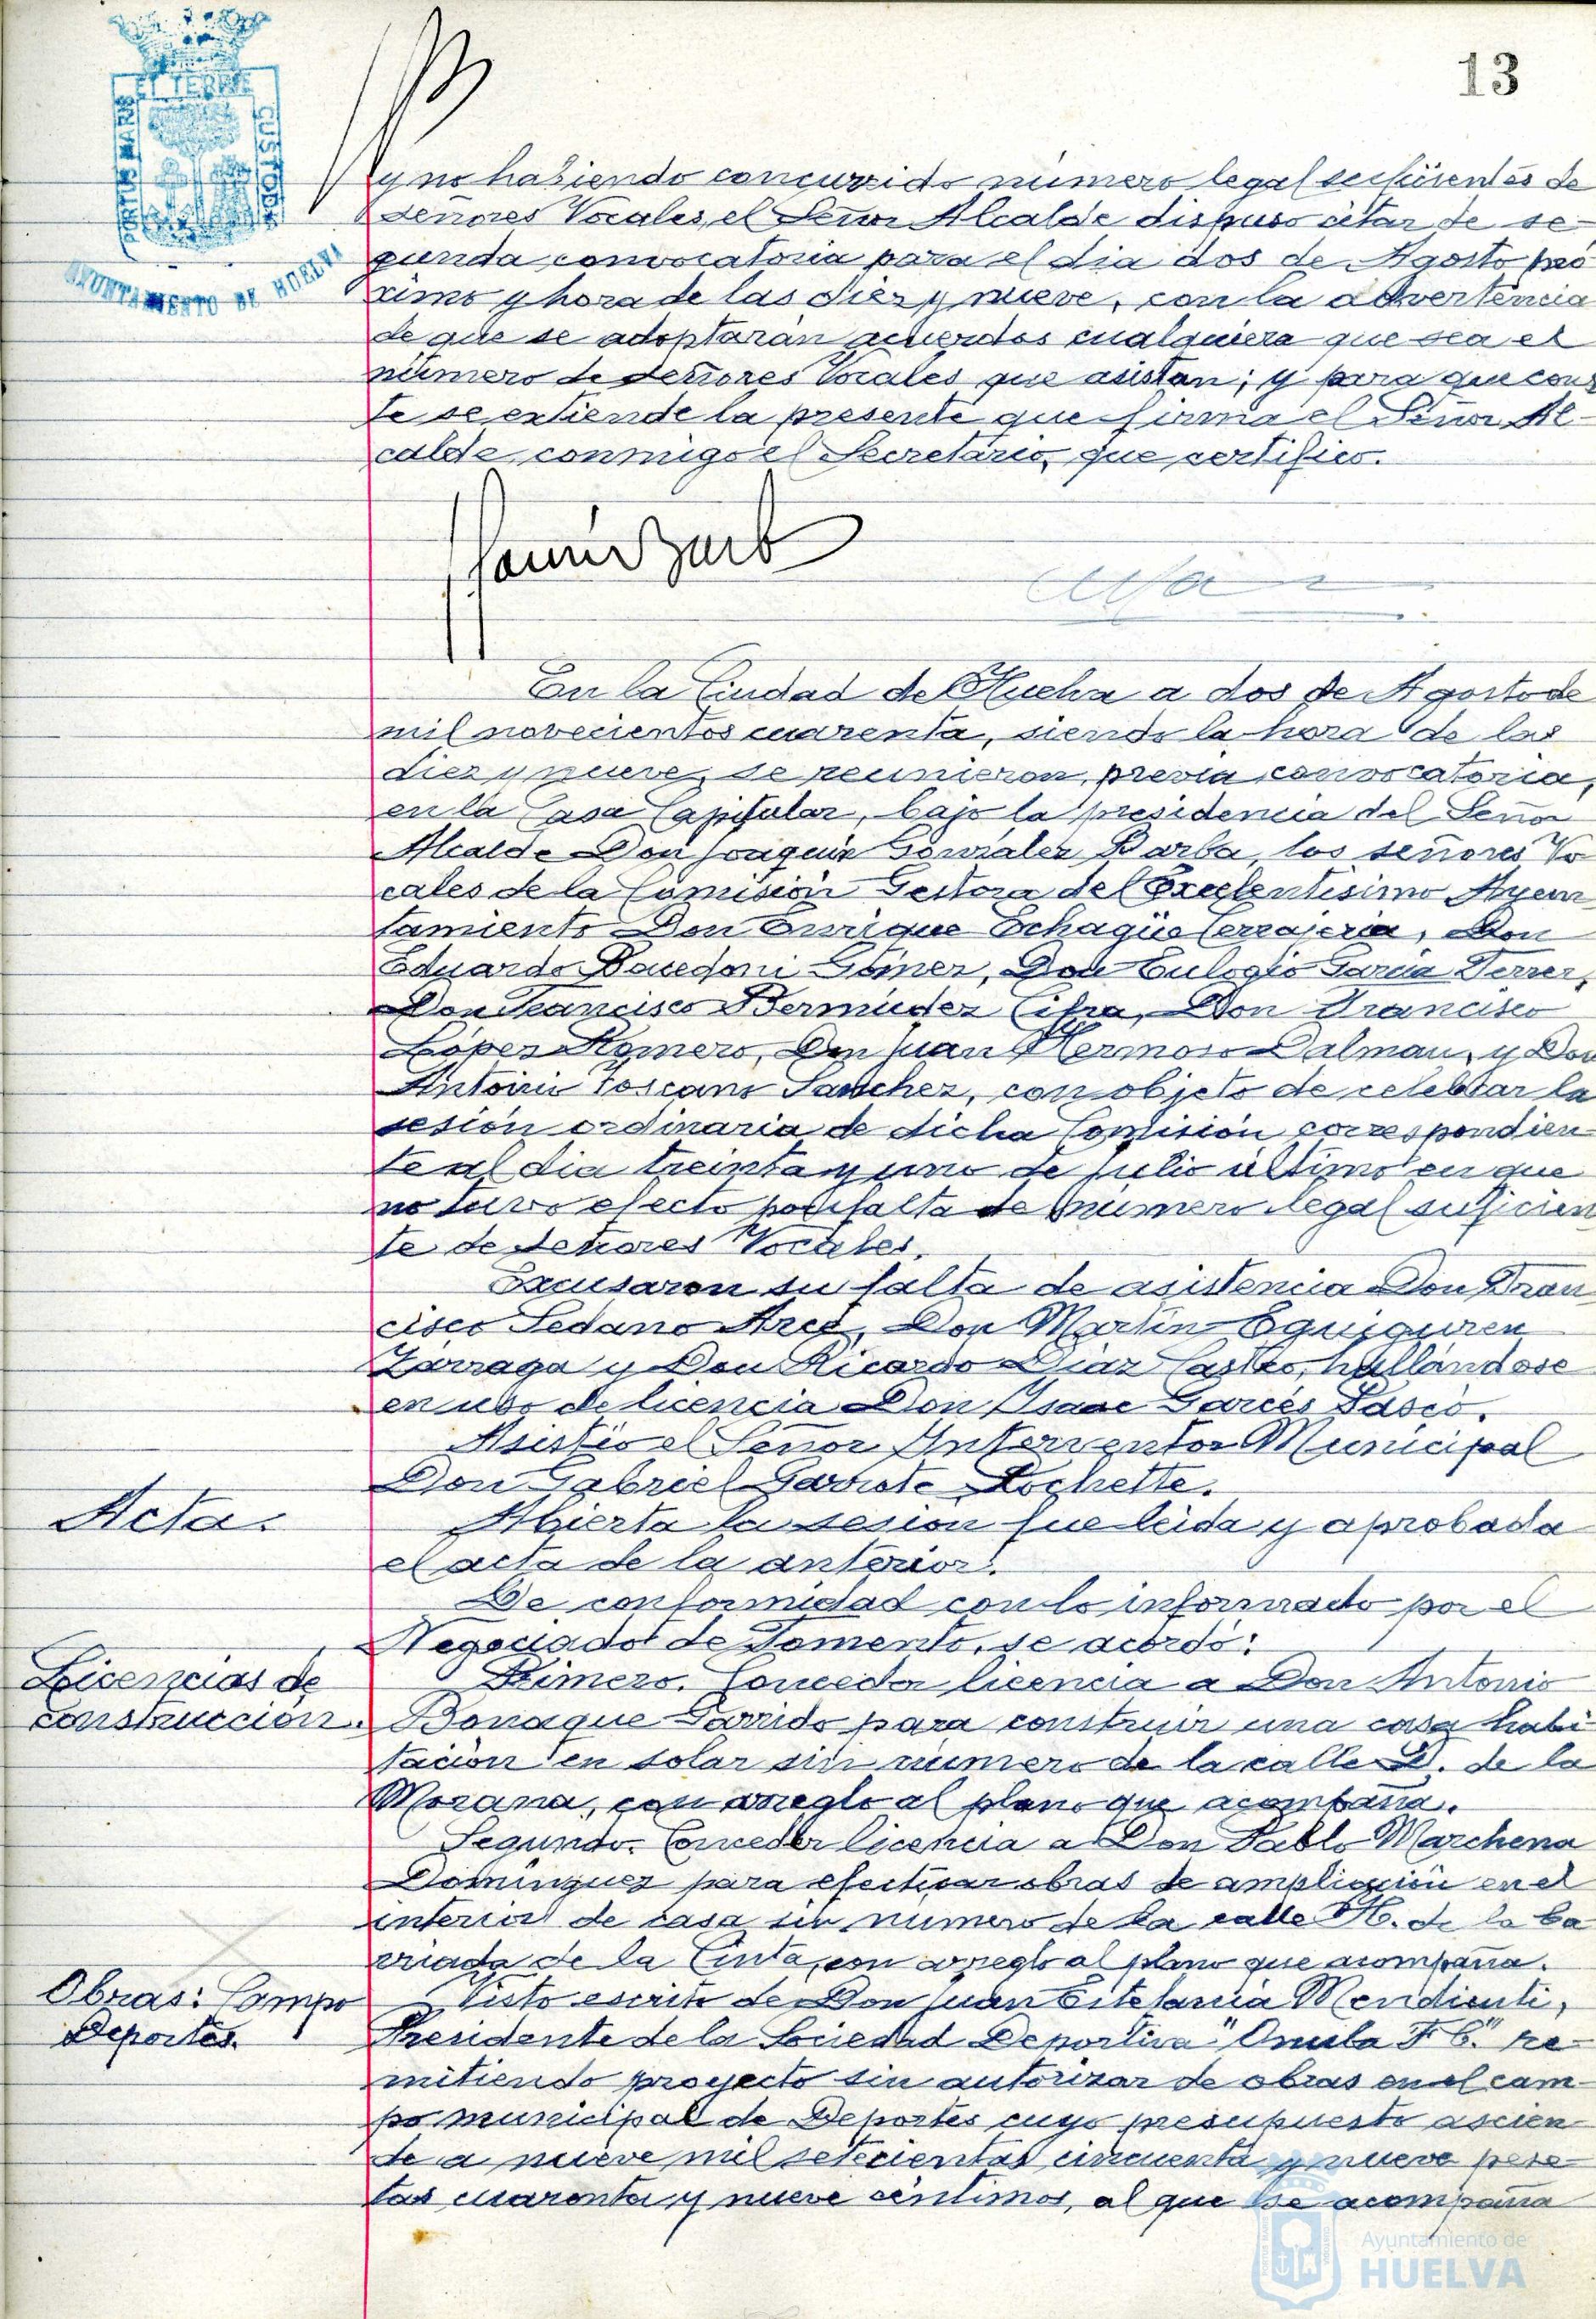 13
PORTUS MARIS
ET TERRE
CUSTODIA
AYUNTAMIENTO DE HUELVA
y no habiendo concurrido número legal suficientes de
señores Vocales, el Señor Alcalde dispuso citar de se-
gunda convocatoria para el dia dos de Agosto pró
ximo y hora de las diez y nueve, con la advertencia
de que se adoptarán acuerdos cualquiera que sea el
número de señores Vocales que asistan; y para que cons
te se extiende la presente que firma el Señor Al-
calde conmigo el Secretario, que certifico.
En la Ciudad de Huelva a dos de Agosto de
mil novecientos cuarenta, siendo la hora de las
diez y nueve, se reunieron, previa convocatoria,
en la Casa Capitular, bajo la presidencia del Señor
Alcalde Don Joaquin González Barba, los señores Vo
cales de la Comisión Gestora del Excelentísimo Ayun
tamiento Don Enrique Echagüe Cerrajeria, Don
Eduardo Gómez, Don Eulogio Garcia Ferrer,
Don Francisco Bermúdez Cifra, Don Francisco
López Romero, Don Juan Hermoso Dalmau, y Don
Antonio Toscano Sanchez, con objeto de celebrar la
sesión ordinaria de dicha Comisión correspondien-
te al dia treinta y uno de julio último en que
no tuvo efecto por falta de número legal suficien
te de señores Vocales.
Excusaron su falta de asistencia Don Fran
cisco Sedano Arce, Don Martín Eguiguren
Zarraga y Don Ricardo Diaz Castro, hallándose
en uso de licencia Don Isaac Garcés
Asistió el Señor Interventor Municipal
Don Gabriel Garrote Rochette.
Acta.
Abierta la sesión fue leida y aprobada
el acta de la anterior.
De conformidad con lo informado por el
Negociado de Fomento, se acordó:
Licencias de
construcción.
Primero. Conceder licencia a Don Antonio
Bonaque Garrido para construir una casa habi
tación en solar sin número de la calle D. de la
Morana, con arreglo al plano que acompaña.
Segundo. Conceder licencia a Don Pablo Marchena
Dominguez para efectuar obras de ampliación en el
interior de casa sin número de la calle H. de la ba
rriada de la Cinta, con arreglo al plano que acompaña.
Obras: Campo
Deportes.
Visto escrito de Don Juan Estefania Mendicuti,
Presidente de la Sociedad Deportiva "Onuba F C." re-
mitiendo proyecto sin autorizar de obras en el cam-
po municipal de Deportes cuyo presupuesto ascien-
de a nueve mil setecientas cincuenta y nueve pese-
tas cuarenta y nueve céntimos, al que se acompaña
Ayuntamiento de
HUELVA